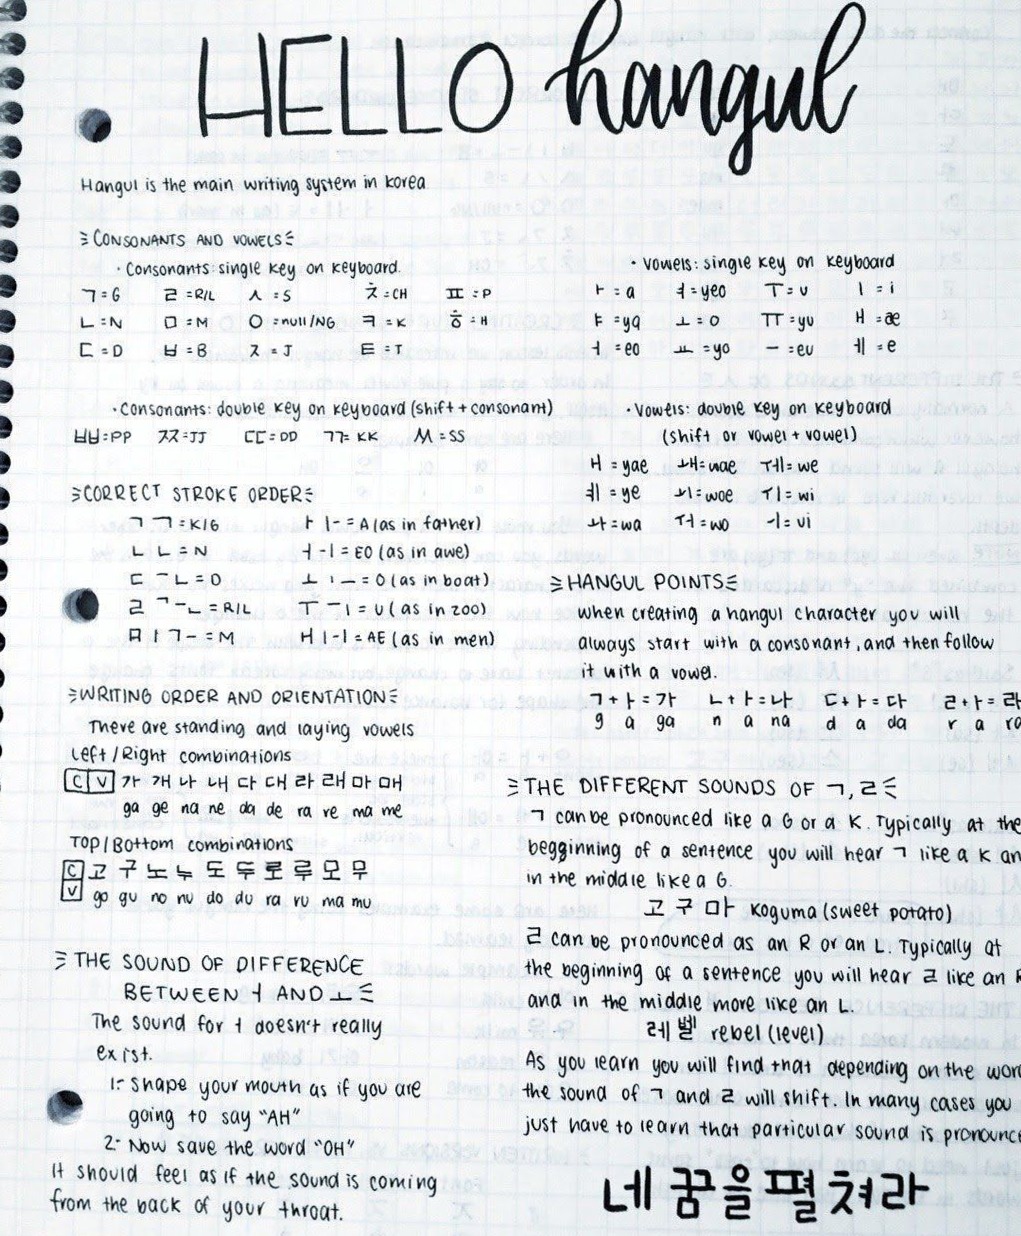 HELLO hangul
Hangul is the main writing system in Korea
CONSONANTS AND VOWELS
· Consonants: single key on keyboard.
ㄱ=G ㄹ=R/L ㅅ=S ㅊ=CH ㅍ=P
ㄴ=N ㅁ=M ㅇ=null/NG ㅋ=K ㅎ=H
ㄷ=D ㅂ=B ㅈ=J ㅌ=T
· Consonants: double key on keyboard (shift + consonant)
ㅃ=PP ㅉ=JJ ㄸ=DD ㄲ=KK ㅆ=SS
CORRECT STROKE ORDER
ㄱ ㄱ=K/G
ㄴ ㄴ=N
ㄷ ㅡㄴ=D
ㄹ ㄱㅡㄴ=R/L
ㅁ ㅣㄱㅡ=M
ㅏ ㅣ-=A (as in father)
ㅓ -ㅣ=EO (as in awe)
ㅗ ㅣㅡ=O (as in boat)
ㅜ ㅡㅣ=U (as in zoo)
ㅐ ㅣ-ㅣ=AE (as in men)
WRITING ORDER AND ORIENTATION
There are standing and laying vowels
Left/Right combinations
C V 가 개 나 내 다 대 라 래 마 매
ga ge na ne da de ra re ma me
Top/Bottom combinations
C 고 구 노 누 도 두 로 루 모 무
V go gu no nu do du ra ru ma mu
THE SOUND OF DIFFERENCE
BETWEEN ㅓ AND ㅗ
The sound for ㅓ doesn't really
exist.
1- Shape your mouth as if you are
going to say "AH"
2- Now save the word "OH"
It should feel as if the sound is coming
from the back of your throat.
· Vowels: single key on keyboard
ㅏ=a ㅕ=yeo ㅜ=u ㅣ=i
ㅑ=ya ㅗ=o ㅠ=yu ㅐ=æ
ㅓ=eo ㅛ=yo ㅡ=eu ㅔ=e
· Vowels: double key on keyboard
(shift or vowel + vowel)
ㅒ=yae ㅙ=wae ㅞ=we
ㅖ=ye ㅚ=woe ㅟ=wi
ㅘ=wa ㅝ=wo ㅢ=vi
HANGUL POINTS
when creating a hangul character you will
always start with a consonant, and then follow
it with a vowel.
ㄱ+ㅏ=가 ㄴ+ㅏ=나 ㄷ+ㅏ=다 ㄹ+ㅏ=라
g a ga n a na d a da r a ra
THE DIFFERENT SOUNDS OF ㄱ,ㄹ
ㄱ can be pronounced like a G or a K. Typically at the
begginning of a sentence you will hear ㄱ like a K an
in the middle like a G.
고 구 마 koguma (sweet potato)
ㄹ can be pronounced as an R or an L. Typically at
the beginning of a sentence you will hear ㄹ like an R
and in the middle more like an L.
레 벨 rebel (level)
As you learn you will find that depending on the word
the sound of ㄱ and ㄹ will shift. In many cases you
just have to learn that particular sound is pronounce
네 꿈을 펼쳐라